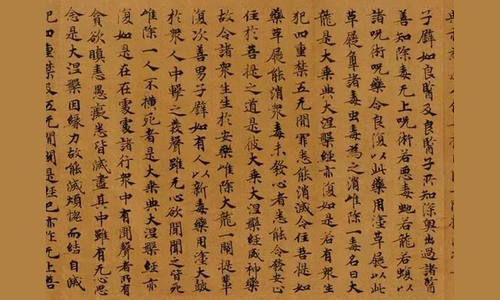 子辟如良醫及良醫子所知深奧出過諸醫
善知除毒无上呪術若惡毒蛇若龍若蝮以
諸呪術呪藥令良復以此藥用塗革屣以此
革屣觸諸毒虫毒為之消唯除一毒名曰大
龍是大乘典大涅槃經亦復如是若有衆生
犯四重禁五无間罪悉能消滅令住菩提如
藥革屣能消衆毒未發心者悉能令發安心
住於菩提之道是彼大乘大涅槃經威神藥
故令諸衆生生於安樂唯除大龍一闡提輩
復次善男子辟如有人以新毒藥用塗大鼓
於衆人中擊之發聲雖无心欲聞聞之皆死
唯除一人不橫死者是大乘典大涅槃經亦
復如是在在處處諸行衆中有聞聲者所有
貪欲瞋恚愚癡悉皆滅盡其中雖有无心思
念是大涅槃因緣力故能滅煩惱而結自滅
犯四重禁及五无間聞是經已亦作无上菩